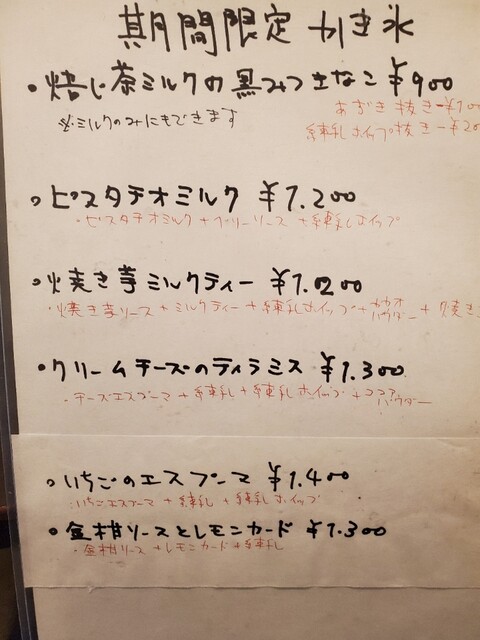 期間限定 かき氷
・焙じ茶ミルクの黒みつきなこ ¥900
※ミルクのみにもできます
あずき抜き-¥100
練乳ホイップ抜き-¥20
・ピスタチオミルク ¥1.200
・ピスタチオミルク+ベリーソース+練乳ホイップ
・焼き芋ミルクティー ¥1.0200
・焼き芋ソース+ミルクティー+練乳ホイップ+カカオパウダー+焼き
・クリームチーズのティラミス ¥1.300
・チーズエスプーマ+練乳+練乳ホイップ+ココアパウダー
・いちごのエスプーマ ¥1.400
・いちごエスプーマ+練乳+練乳ホイップ
・金柑ソースとレモンカード ¥1.300
・金柑ソース+レモンカード+練乳